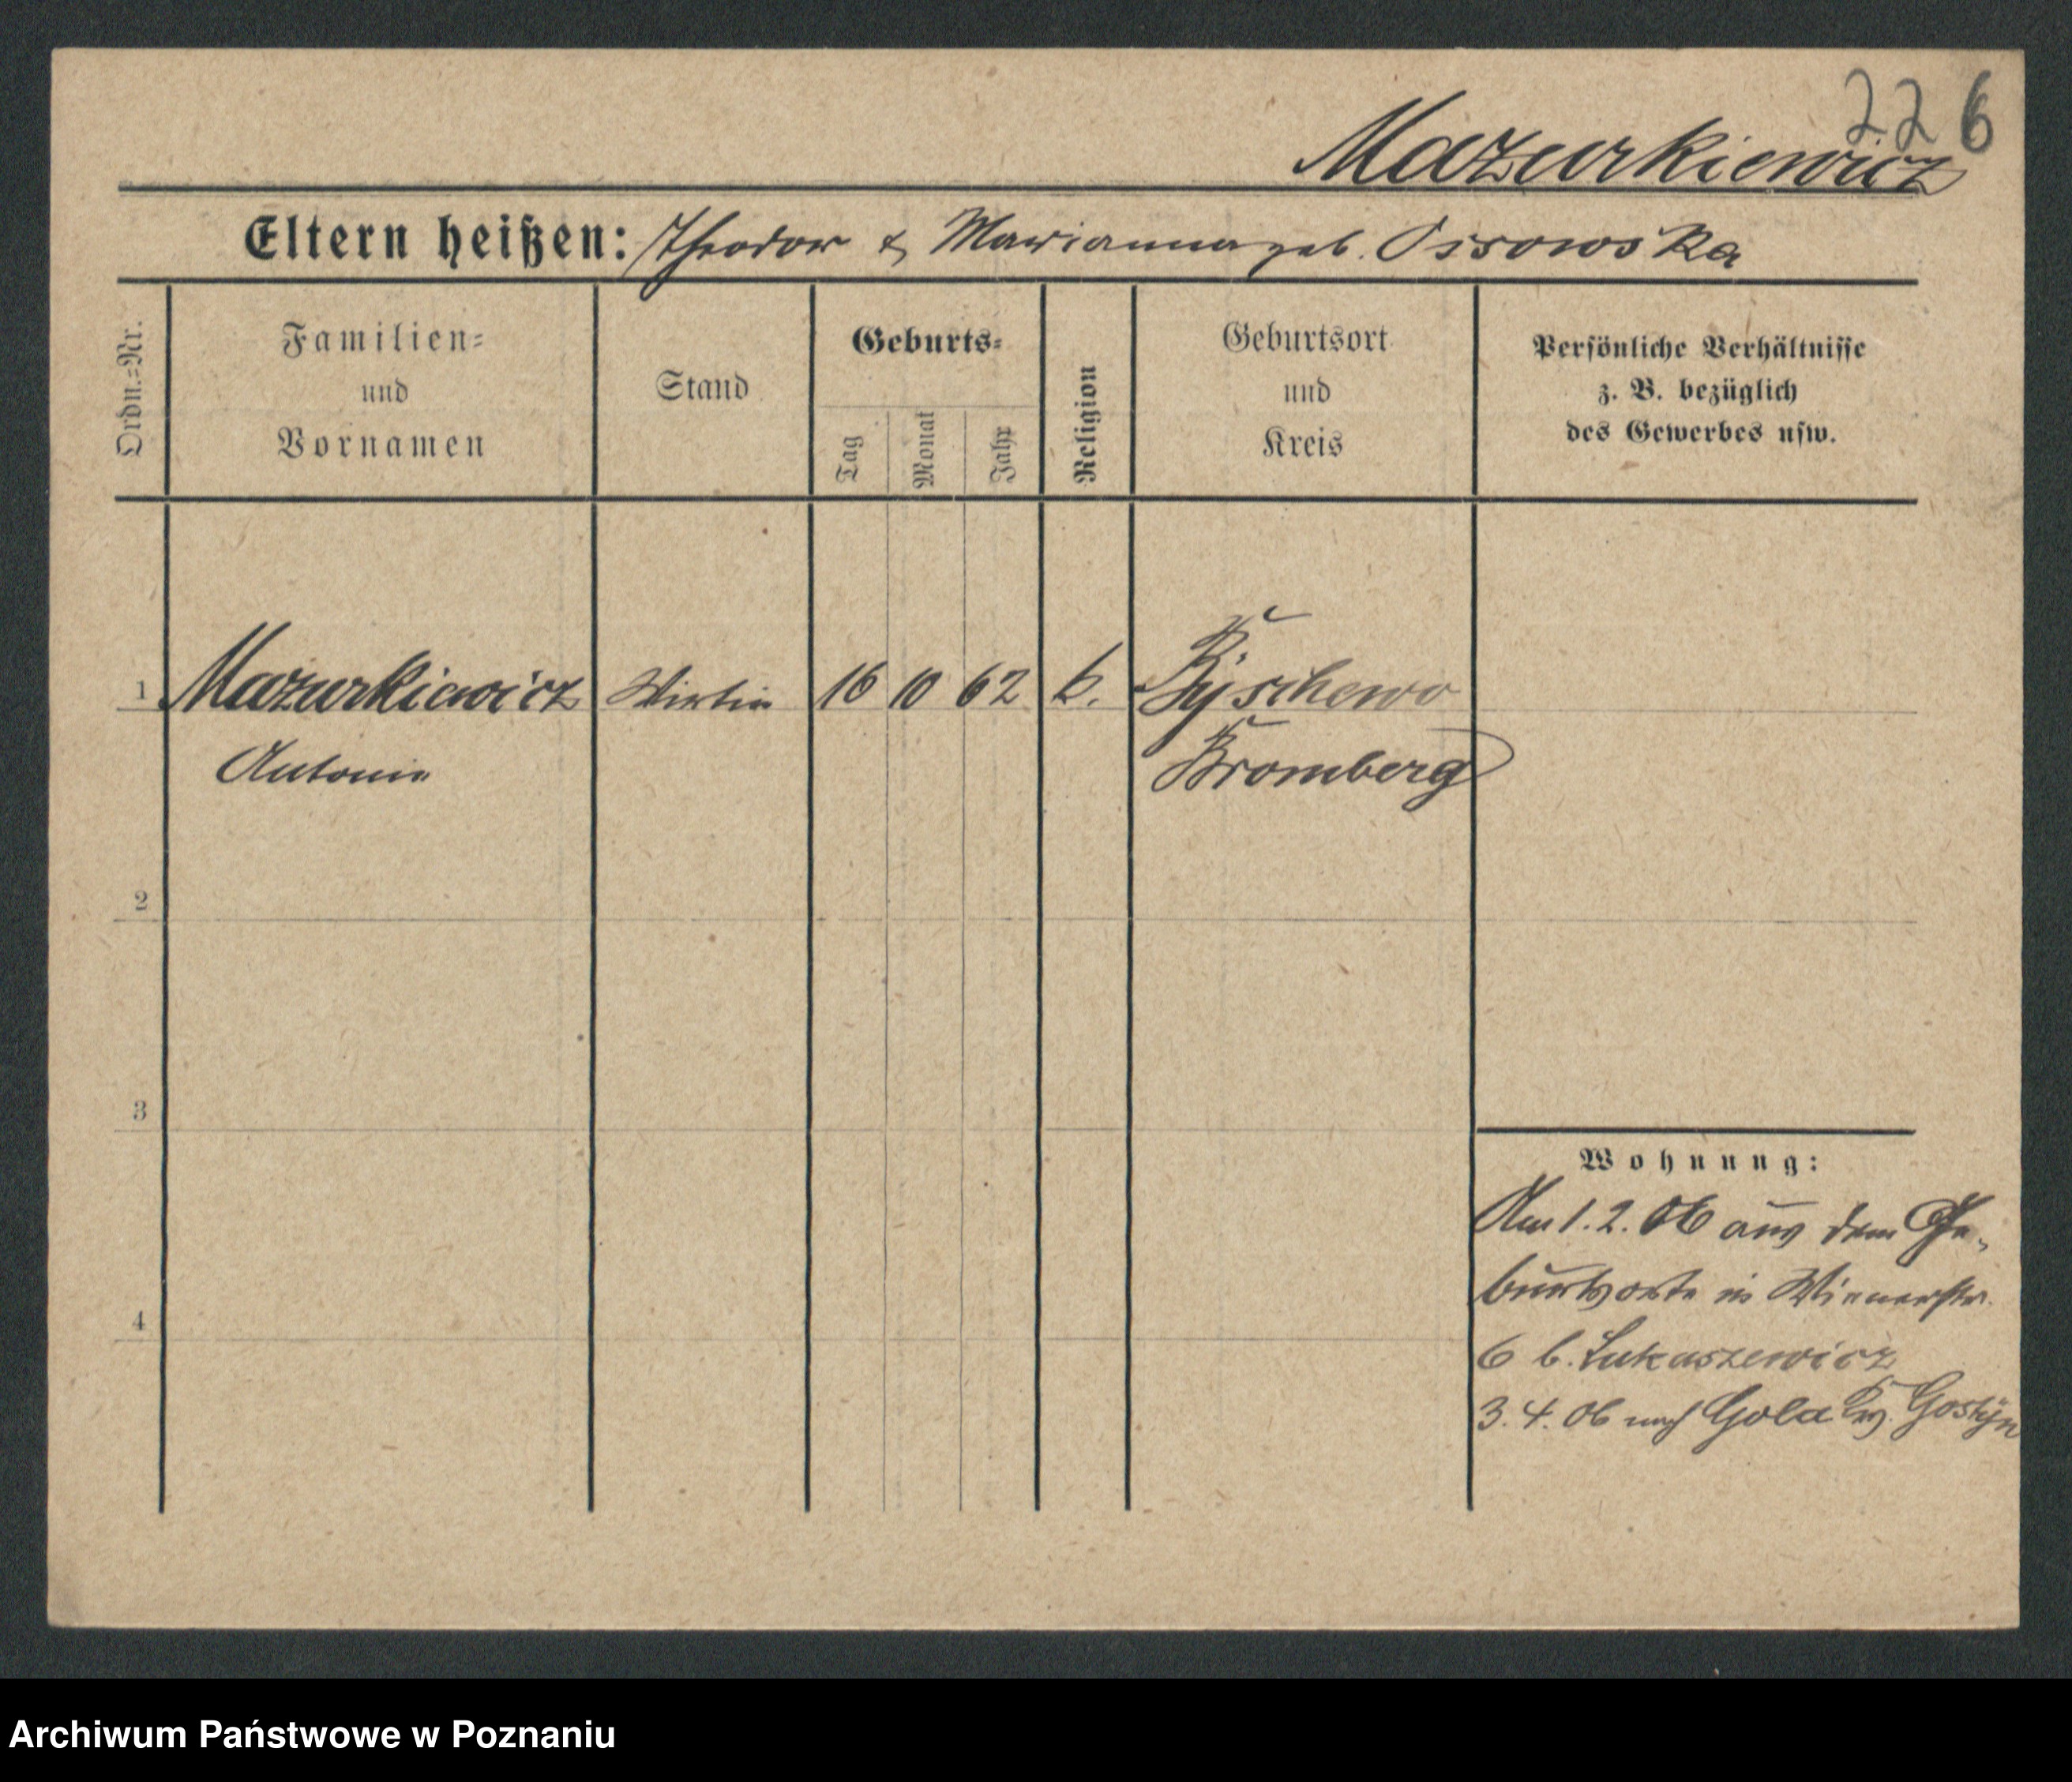 226
Mazurkiewicz
Eltern heißen: Theodor & Marianna geb. Ossowska
Ordn.=Nr.
Familien=
und
Vornamen
Stand
Geburts=
Tag
Monat
Jahr
Religion
Geburtsort
und
Kreis
Persönliche Verhältnisse
z. B. bezüglich
des Gewerbes usw.
1 Mazurkiewicz Wirtin 16 10 62 k.
Antonie Bromberg
2
3
4
Wohnung:
Am 1. 2. 06 aus dem Ge-
burtsorte in Wienerstr.
6 b. Lukaszewicz
3. 4. 06 nach Gola Krs. Gostyn
Archiwum Państwowe w Poznaniu